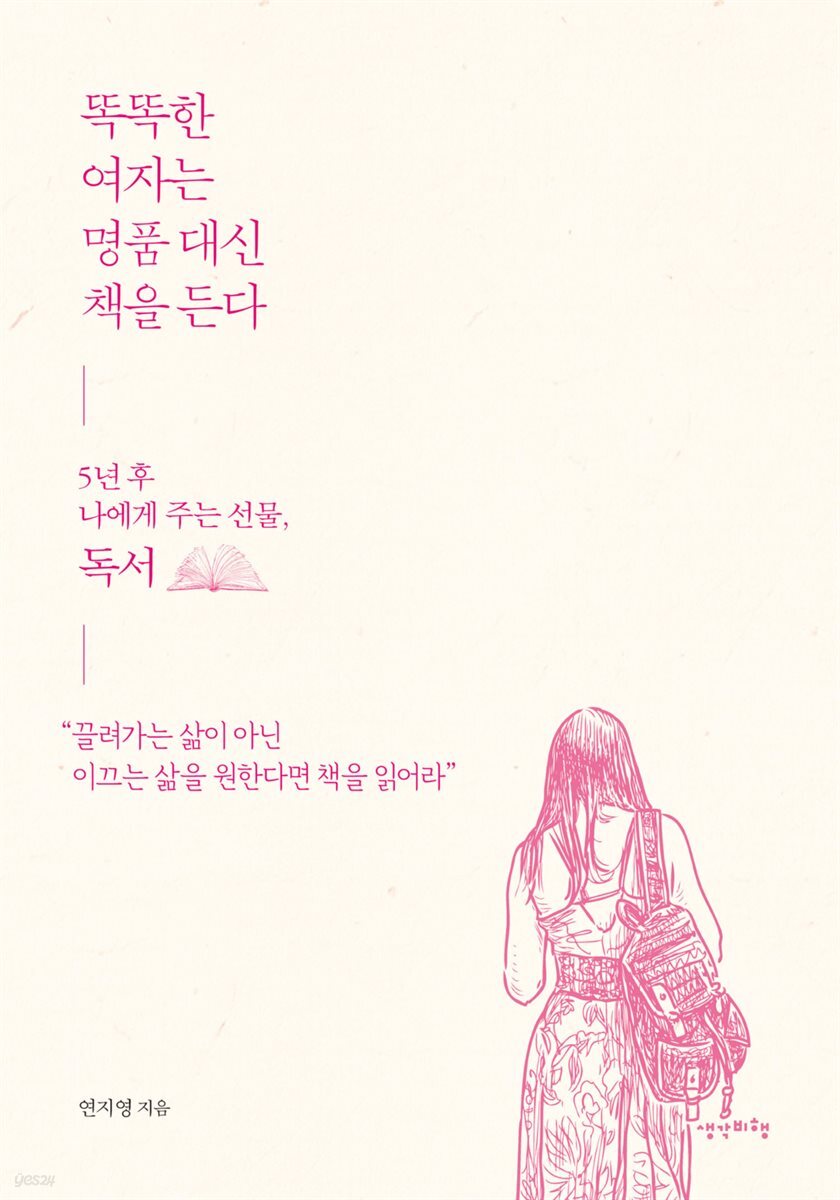 똑똑한
여자는
명품 대신
책을 든다
5년 후
나에게 주는 선물,
독서
“끌려가는 삶이 아닌
이끄는 삶을 원한다면 책을 읽어라”
연지영 지음
생각비행
yes24